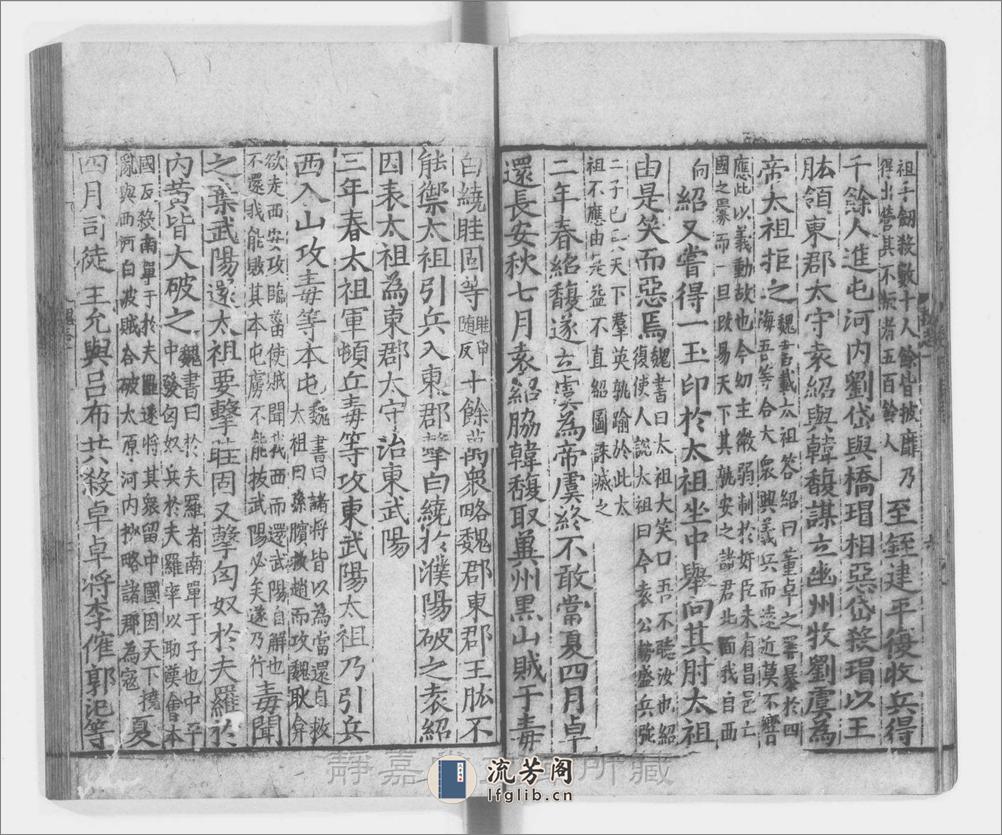 祖手劒殺數十人餘皆披靡乃
得出營其不叛者五百餘人
至銍建平復收兵得
千餘人進屯河内劉岱與橋瑁相惡岱殺瑁以王
肱領東郡太守袁紹與韓馥謀立幽州牧劉虞為
帝太祖拒之
魏書載太祖答紹曰董卓之罪暴於四
海吾等合大衆興義兵而遠近莫不響
應此以義動故也今幼主微弱制於姧臣未有昌邑亡
國之釁而一旦改易天下其孰安之諸君北面我自西
向
紹又嘗得一玉印於太祖坐中舉向其肘太祖
由是笑而惡焉
魏書曰太祖大笑曰吾不聽汝也紹
復使人説太祖曰今袁公勢盛兵强
二子已長天下羣英孰踰於此太
祖不應由是益不直紹圖誅滅之
二年春紹馥遂立虞為帝虞終不敢當夏四月卓
還長安秋七月袁紹脇韓馥取兾州黑山賊于毒
白繞眭固等
眭申
随反
十餘萬衆略魏郡東郡王肱不
能禦太祖引兵入東郡擊白繞於濮陽破之袁紹
因表太祖為東郡太守治東武陽
三年春太祖軍頓丘毒等攻東武陽太祖乃引兵
西入山攻毒等本屯
魏書曰諸將皆以為當還自救
太祖曰孫臏救趙而攻魏耿弇
欲走西安攻臨菑使賊聞我西而還武陽自解也
不還我能敗其本屯虜不能拔武陽必矣遂乃行
毒聞
之棄武陽還太祖要擊眭固又擊匈奴於夫羅於
内黄皆大破之
魏書曰於夫羅者南單于子也中平
中發匈奴兵於夫羅率以助漢會本
國反殺南單于於夫羅遂將其衆留中國因天下撓
亂與西河白波賊合破太原河内抄略諸郡為寇
夏
四月司徒王允與吕布共殺卓卓將李傕郭汜等
靜嘉 所藏
流芳阁
lfglib.cn